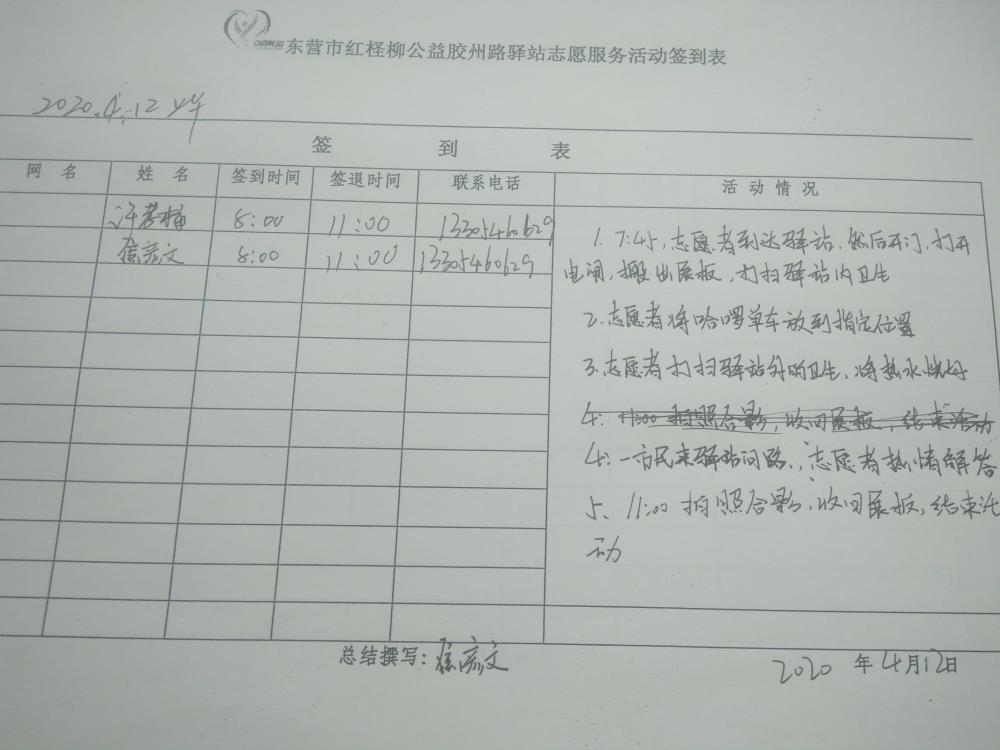 东营市红柽柳公益胶州路驿站志愿服务活动签到表
2020.4.12 上午
签 到 表
网 名 姓 名 签到时间 签退时间 联系电话 活 动 情 况
8:00 11:00 13305460629
8:00 11:00 13305460629
1. 7:45,志愿者到达驿站,然后开门,打开
电闸,搬出展板,打扫驿站内卫生
2.志愿者将哈啰单车放到指定位置
3.志愿者打扫驿站外的卫生,将热水烧好
4. 11:00 拍照合影,收回展板,结束活动
4. 一市民来驿站问路,志愿者热情解答
5、11:00 拍照合影,收回展板,结束活
动
总结撰写:
2020 年4月12日